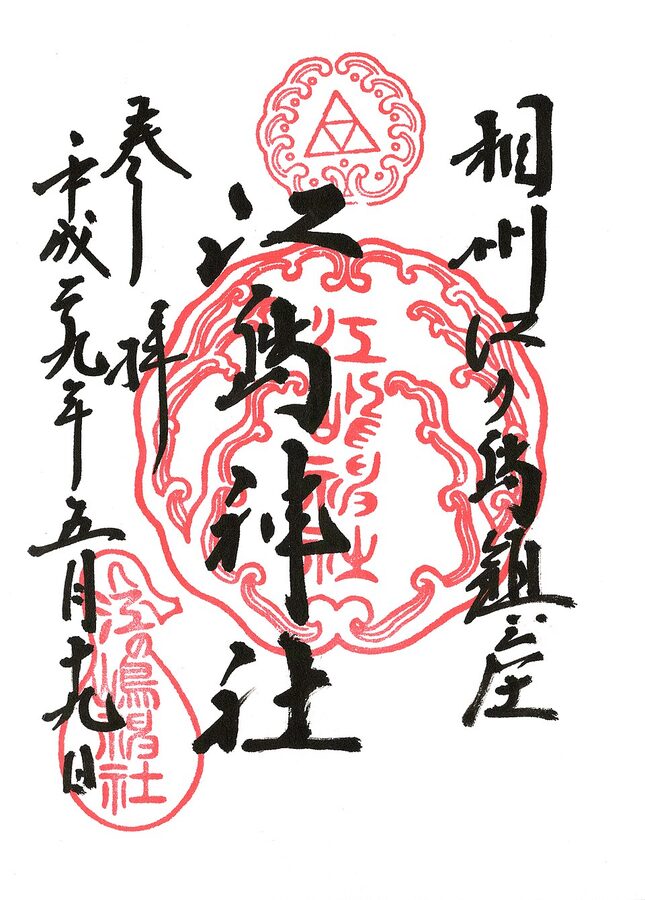 相州江ノ島鎮座
江島神社
江嶋神社
奉拝
平成二九年五月十九日
江の嶋神社